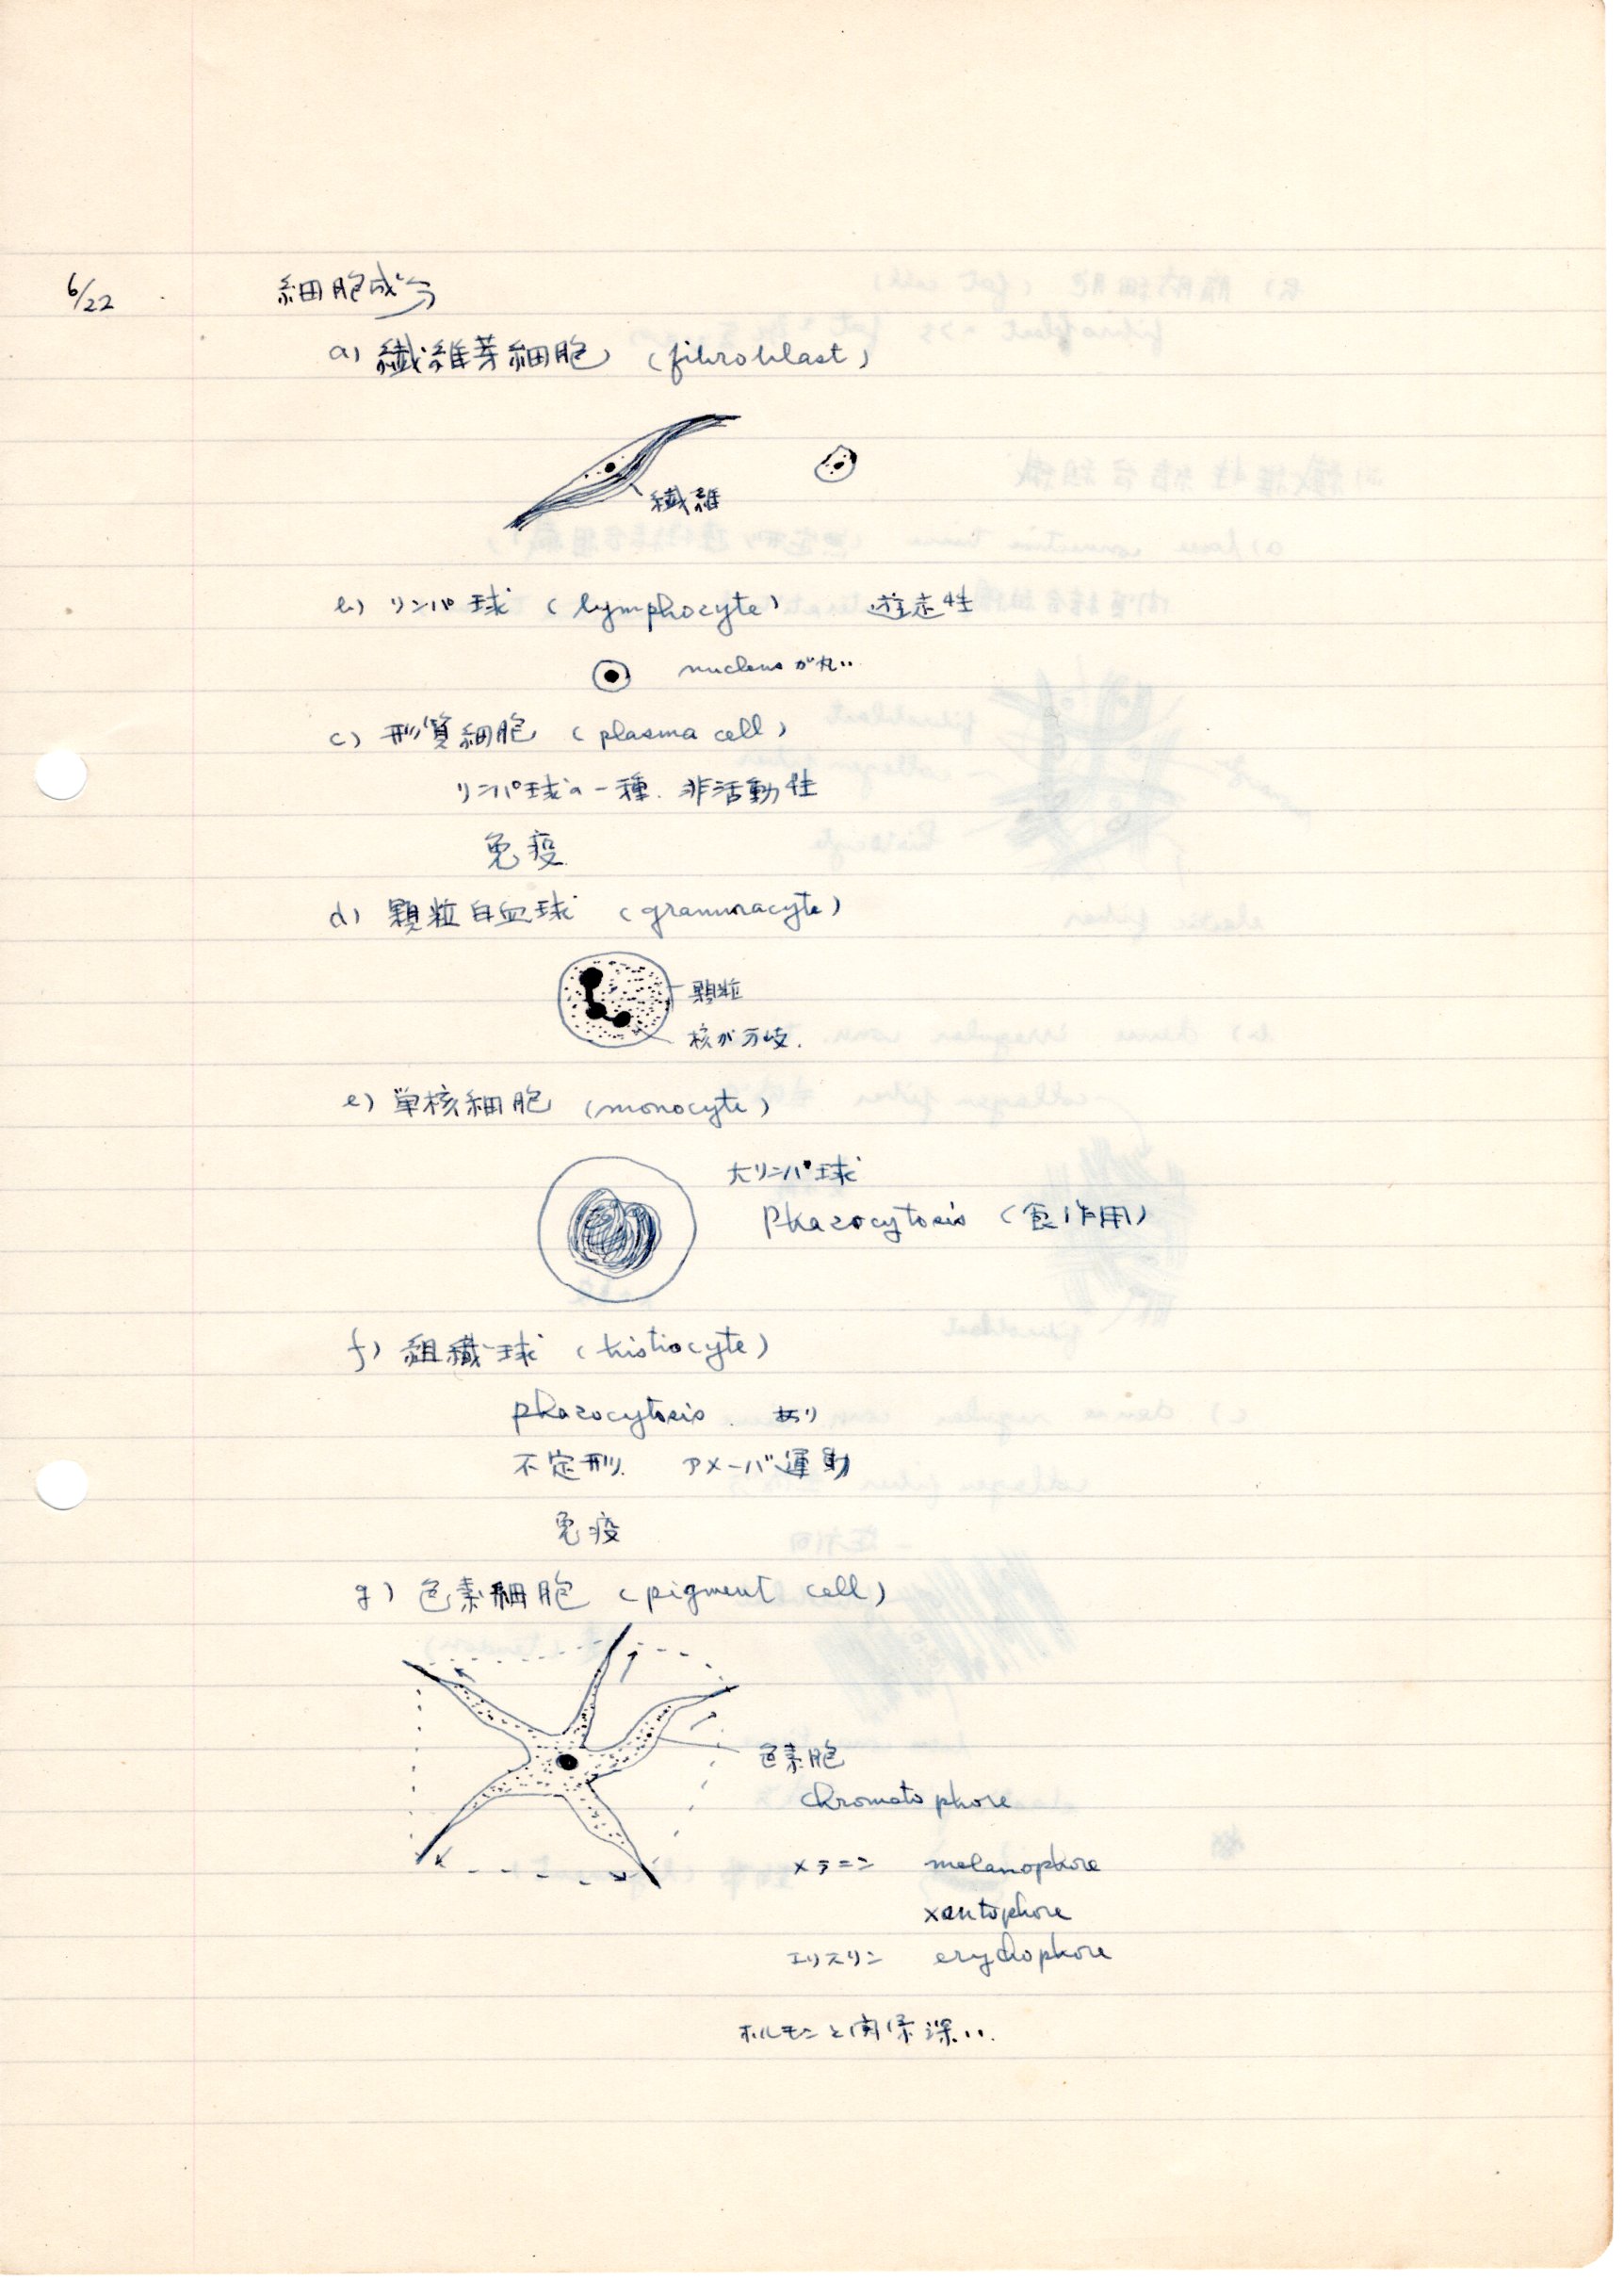 6/22
細胞成分
a) 繊維芽細胞 (fibroblast)
繊維
b) リンパ球 (lymphocyte) 遊走性
nucleusが丸い
c) 形質細胞 (plasma cell)
リンパ球の一種. 非活動性
免疫
d) 顆粒白血球 (grannracyte)
顆粒
核が分岐.
e) 単核細胞 (monocyte)
大リンパ球
Phagocytosis (食作用)
f) 組織球 (histiocyte)
phagocytosis. あり
不定形. アメーバ運動
免疫
g) 色素細胞 (pigment cell)
色素胞
chromatophore
メラニン melanophore
xantophore
エリスリン erychophore
ホルモンと関係深い.